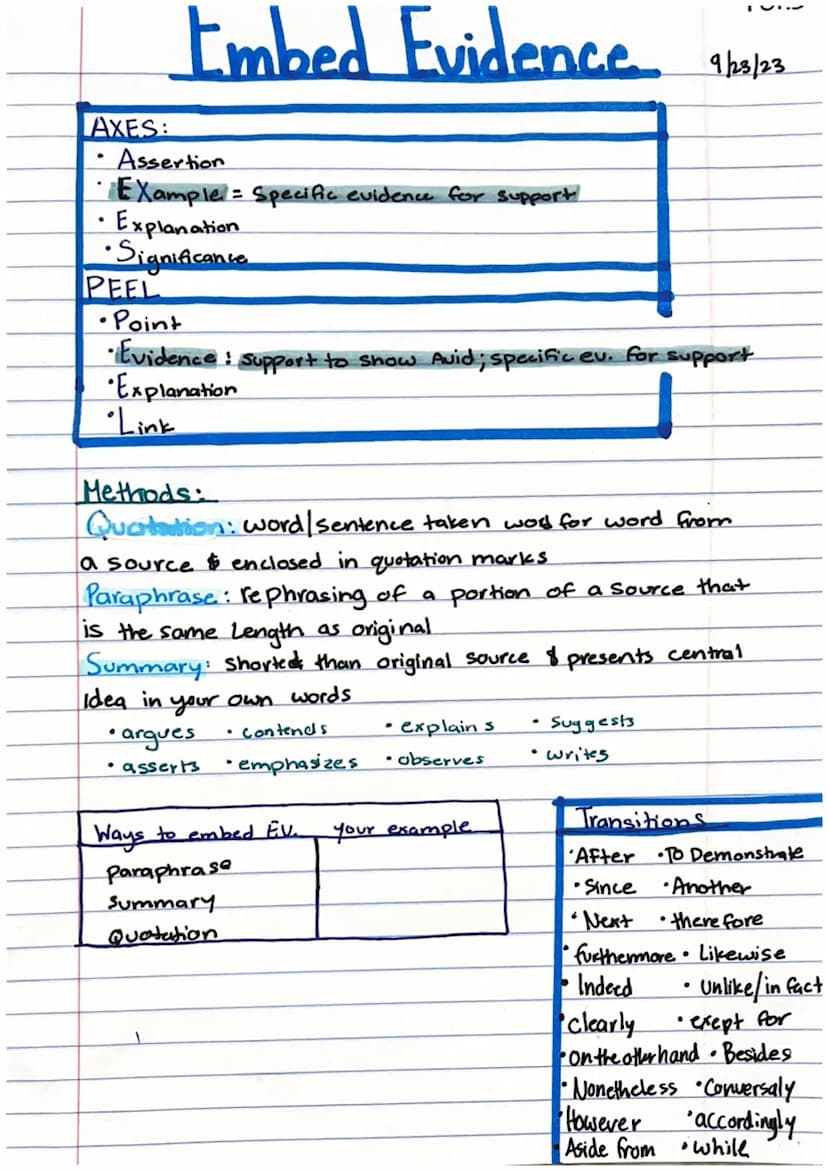 Embed Evidence
9/23/23
AXES:
• Assertion
• EXample = Specific evidence for support
• Explanation
• Significance
PEEL
• Point
• Evidence : support to show Avid; specific ev. for support
• Explanation
• Link
Methods:
Quotation: word/sentence taken wod for word from
a source & enclosed in quotation marks
Paraphrase: rephrasing of a portion of a source that
is the same Length as original
Summary: shorted than original source & presents central
idea in your own words
• argues • contends • explains • Suggests
• asserts • emphasizes • observes • writes
Ways to embed EV. your example
paraphrase
summary
Quotation
Transitions
• After • To Demonstrate
• Since • Another
• Next • therefore
• furthermore • Likewise
• Indeed • Unlike/in fact
• clearly • exept for
• on the other hand • Besides
• Nonetheless • Conversaly
• However • accordingly
• Aside from • while